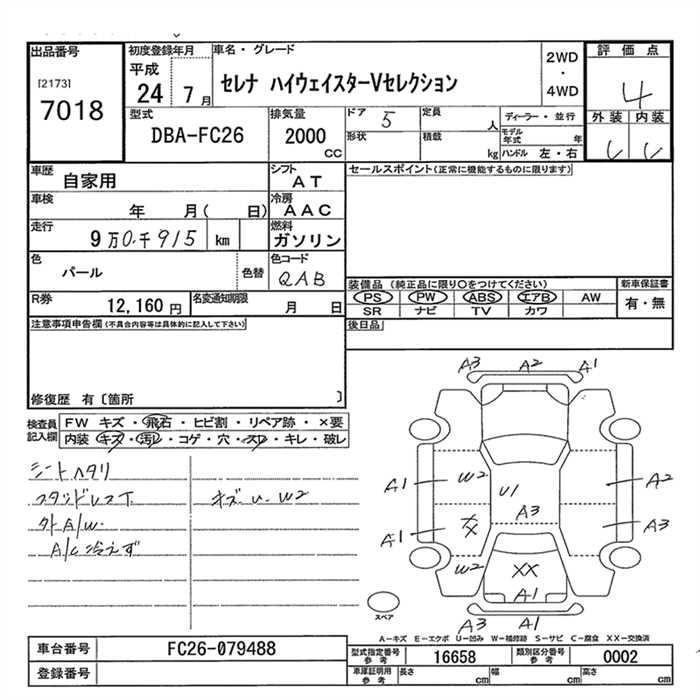 出品番号 初度登録年月 車名・グレード 2WD・4WD 評価点
[2173] 平成
7018 24 7月 セレナ ハイウェイスターVセレクション 4
型式 排気量 ドア 5 定員 人 ディーラー・並行 外装 内装
DBA-FC26 2000 CC 形状 積載 kg モデル年式 年
ハンドル 左・右
車歴 自家用 シフト AT セールスポイント(正常に機能するものに限ります)
車検 年 月( 日) 冷房 AAC
走行 9万0.千915 km 燃料 ガソリン
色 パール 色替 色コード QAB
装備品(純正品に限り○をつけてください) 新車保証書
PS PW ABS エアB AW 有・無
SR ナビ TV カワ
R券 12,160円 名変通知期限 月 日
注意事項申告欄(不具合内容等は具体的に記入して下さい) 後日品
修復歴 有〔箇所 〕
検査員記入欄 FW キズ・飛石・ヒビ割・リペア跡・×要
内装・キズ・汚レ・コゲ・穴・スレ・キレ・破レ
シートヘタリ
スタッドレスT キズ U W2
外A/W.
A/C冷えず
A3 A2 A1
A1 W2 U1 A2
A3
A1 XX A3
W2 XX
A1
A3 A1
スペア
A-キズ E-エクボ U-凹み W-補修跡 S-サビ C-腐食 XX-交換済
車台番号 FC26-079488 型式指定番号 参考 16658 類別区分番号 参考 0002
登録番号 車庫証明用 参考 長さ cm 幅 cm 高さ cm